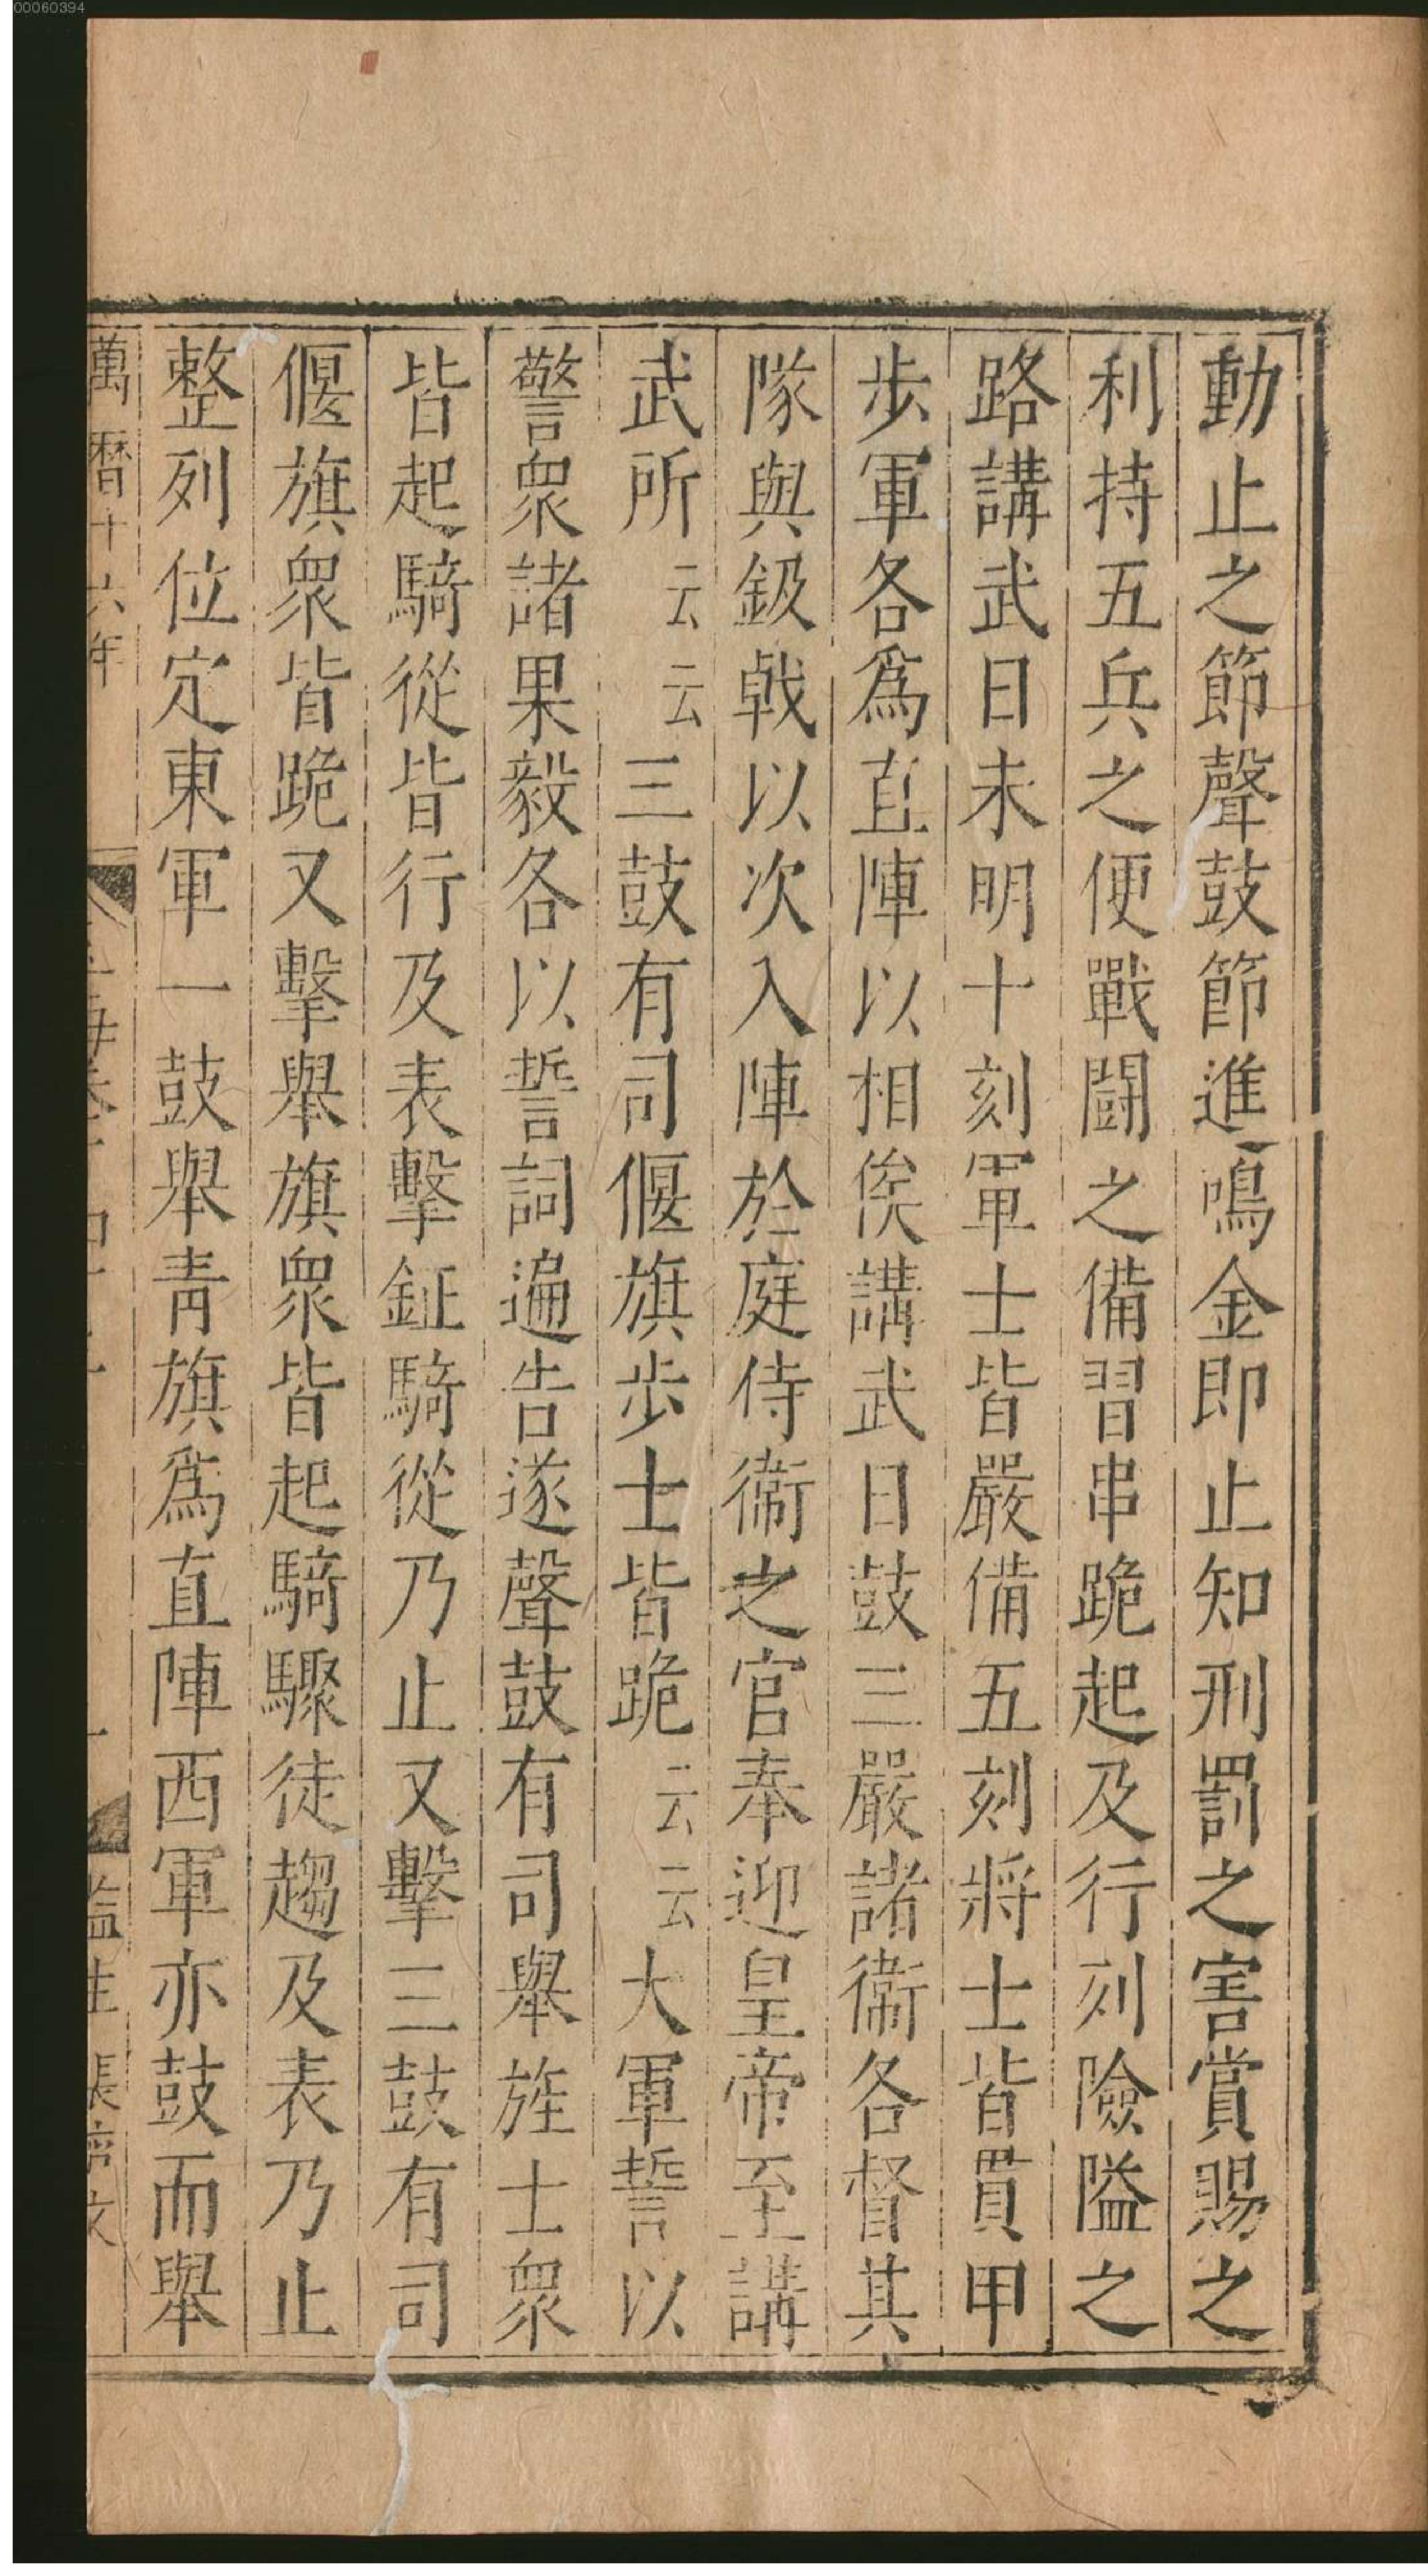 00060394
動止之節聲鼓節進鳴金即止知刑罰之害賞賜之
利持五兵之便戰鬪之備習串跪起及行列險隘之
路講武日未明十刻軍士皆嚴備五刻將士皆貫甲
歩軍各爲直陣以相俟講武日鼓三嚴諸衞各督其
隊與鈒戟以次入陣於庭侍衞之官奉迎皇帝至講
武所云云三鼓有司偃旗歩士皆跪云云大軍誓以
警衆諸果毅各以誓詞遍告遂聲鼓有司舉旌士衆
皆起騎從皆行及表擊鉦騎從乃止又擊三鼓有司
偃旗衆皆跪又擊舉旗衆皆起騎驟徒趨及表乃止
整列位定東軍一鼓舉青旗爲直陣西軍亦鼓而舉
萬曆十六年